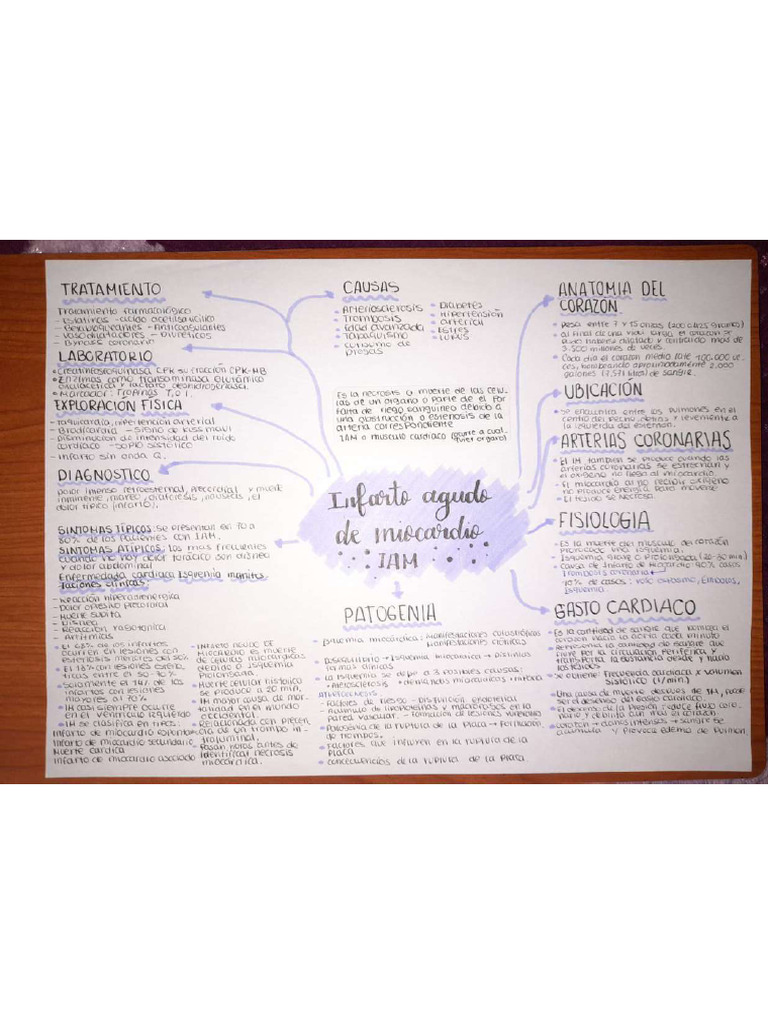 TRATAMIENTO
Tratamiento farmacológico
- Estatinas - ácido acetilsalicílico
- Betabloqueantes - Anticoagulantes
- Vasodilatadores - diuréticos
- Bypass coronario
LABORATORIO
• Creatinfosfoquinasa CPK su fracción CPK-MB
• Enzimas como transaminasa glutámico
oxalacética y lactato deshidrogenasa.
• Marcador: Tropinas T, o I.
EXPLORACIÓN FÍSICA
- Taquicardia, hipertención arterial
- Bradicardia - Signo de Kussmaul
- Disminución de intensidad del ruido
cardiaco - soplo sistólico
- Infarto sin onda Q.
DIAGNOSTICO
Dolor intenso retroesternal, precordial y muerte
inminente, mareo, diaforesis, nauseas, el
dolor típico (infarto).
SINTOMAS TÍPICOS: Se presentan en 70 a
80% de los pacientes con IAM.
SINTOMAS ATIPICOS: Los mas frecuentes
cuando no hay dolor toracico son disnea
y dolor abdominal
Enfermedad cardiaca Isquemia manifes
taciones clínicas.
- Reacción hiperadrenergica
- Dolor opresivo precordial
- Muerte subita
- Disnea
- Reacción vasotonica
- Arritmias
• El 68% de los infartos
ocurren en lesiones con
estenosis menores del 50%
• El 18% con lesiones esteno
ticas entre el 50-70%
• Solamente el 14% de los
infartos con lesiones
mayores al 70%
• IM casi siempre ocurre
en el ventriculo izquierdo
• IM se clasifica en tipos:
Infarto de miocardio espontaneo
Infarto de miocardio secundario
Muerte cardíaca
Infarto de miocardio asociado
• Infarto agudo de
Miocardio es muerte
de celulas miocardicas
debido a isquemia
Prolongada.
• Muerte celular histologica
se produce a 20 min.
• IM mayor causa de mor-
talidad en el mundo
occidental
• Relacionada con presen
cia de un trombo in-
traluminal,
Pasan horas antes de
identificar necrosis
miocardica.
CAUSAS
• Arteriosclerosis
• Trombosis
• Edad avanzada
• Tabaquismo
• Consumo de
drogas
• Diabetes
• Hipertensión
arterial
• Estres
• Lupus
Es la necrosis o muerte de las celu
las de un organo o parte de el por
falta de riego sanguineo debido a
una obstrucción o estenosis de la
arteria correspondiente
IAM o musculo cardiaco (ocurre a cual.
quier organo)
Infarto agudo
de miocardio
IAM
PATOGENIA
Isquemia miocardica: Manifestaciones
Manifestaciones clinicas
Desequilibrio → Isquemia miocardica → Distintas
formas clinicas
La isquemia se debe a 3 posibles causas:
• Aterosclerosis • demandas miocardicas
ATEROGENESIS:
- Factores de riesgo - Disfunción endotelial
- Acumulo de lipoproteinas y macrofagos en la
pared vascular. - Formación de lesiones vulnerables
• Patogenia de la ruptura de la placa → Formación
de trombos.
• Factores que influyen en la ruptura de la
Placa
• consecuencias de la ruptura de la placa.
ANATOMIA DEL
CORAZÓN
• Pesa entre 7 y 15 onzas (200 a 425 gramos)
• Al final de una vida larga el corazón se
pudo haberse dilatado y contraido más de
3.500 millones de veces.
• Cada dia el corazon medio late 100.000 ve
ces, bombeando aproximadamente 2.000
galones (7.571 litros) de sangre.
UBICACIÓN
• Se encuentra entre los pulmones en el
centro del pecho, detras y levemente a
la izquierda del esternon.
ARTERIAS CORONARIAS
• El IM tambien se produce cuando las
arterias coronarias se estrechan y
el oxigeno no llega al miocardio
• El miocardio al no recibir oxigeno
no produce energia para moverse
• El tejido se necrosa
FISIOLOGIA
- Es la muerte del musculo del corazón
provocado una isquemia.
- Isquemia grave o prolongada (20-30 min)
- causa de Infarto de Miocardio 90% casos
Trombosis coronaria
- 10% de casos: Vaso espasmo, Embolos,
Isquemia.
GASTO CARDIACO
• Es la cantidad de sangre que bombea el
corazon hacia la aorta cada minuto
• Representa la cantidad de sangre que
fluye por la circulación periferica y
transporta la sustancia desde y hacia
los tejidos
• Se obtiene: Frecuencia cardiaca x volumen
sistólico (l/min)
• Una causa de muerte despues de IM, puede
ser el descenso del Gasto cardiaco.
• El descenso de la presión reduce flujo coro
nario y debilita aun mas el corazon
• corazón → Daños intensos → sangre se
acumula y provoca edema de Pulmon.